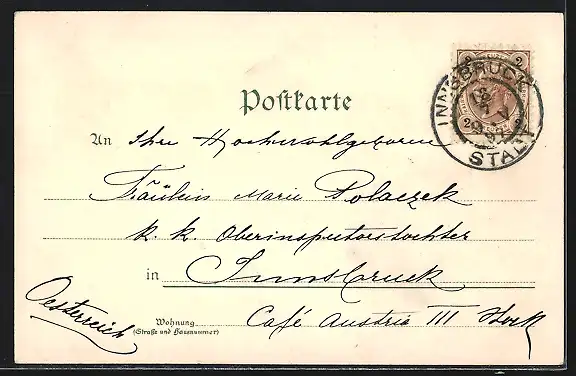 INNSBRUCK
STADT
2 2
Postkarte
An Ihre Hochwohlgeboren
Fräulein Marie Polaczek
k. k. Oberinspectorstochter
in Innsbruck
Oesterreich
Wohnung
(Straße und Hausnummer)
Café Austria III Stock